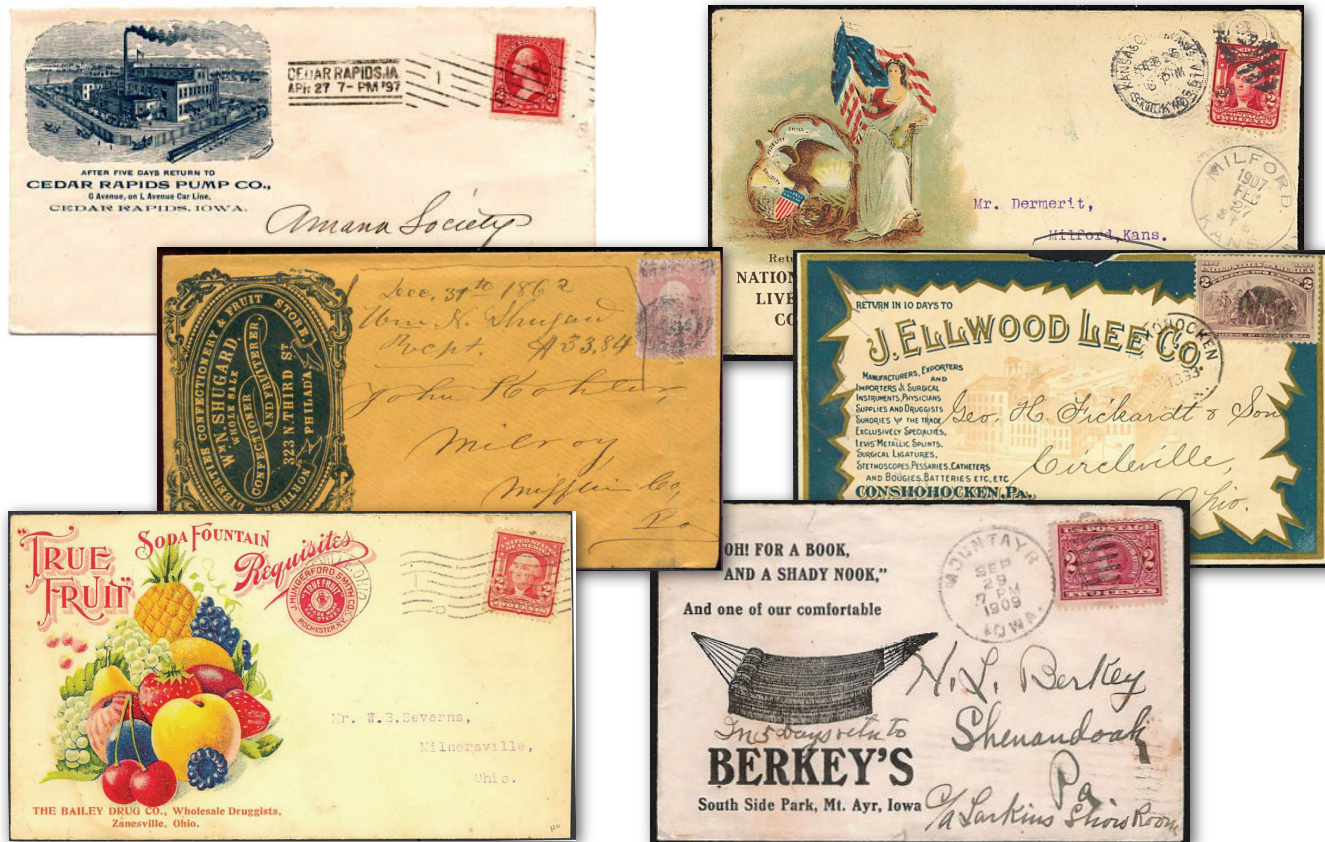 CEDAR RAPIDS.IA.
APR 27 7-PM '97
1
AFTER FIVE DAYS RETURN TO
CEDAR RAPIDS PUMP CO.,
G Avenue, on L Avenue Car Line,
CEDAR RAPIDS, IOWA.
Amana Society
FIDELITY SKILL
EQUITY
POSTAGE
TWO CENTS
MILFORD,
1907
FEB
27
KANS.
Mr. Dermerit,
Milford, Kans.
NATION
LIVE
CO
NORTHERN LIBERTIES CONFECTIONERY & FRUIT STORE.
WM. N. SHUGARD,
WHOLE SALE
CONFECTIONER
AND FRUITERER,
323 N. THIRD ST
PHILADA.
Dec. 31th 1862
Wm N. Shugard
Recpt. $33.84
John Kohler
Milroy
Mifflin Co,
Pa
RETURN IN 10 DAYS TO
J. ELLWOOD LEE CO.
MANUFACTURERS, EXPORTERS
AND
IMPORTERS OF SURGICAL
INSTRUMENTS, PHYSICIANS
SUPPLIES AND DRUGGISTS
SUNDRIES TO THE TRADE
EXCLUSIVELY SPECIALTIES,
LEVIS' METALLIC SPLINTS,
SURGICAL LIGATURES,
STETHOSCOPES, PESSARIES, CATHETERS
AND BOUGIES, BATTERIES ETC, ETC
CONSHOHOCKEN, PA.,
Geo. H. Fickardt & Son
Circleville,
Ohio.
"TRUE
FRUIT"
SODA FOUNTAIN
Requisites
J. HUNGERFORD SMITH CO.
"TRUE FRUIT"
TRADE MARK
ROCHESTER, N.Y.
UNITED STATES
OF AMERICA
Mr. W.B.Severns,
Milnersville,
Ohio.
THE BAILEY DRUG CO., Wholesale Druggists,
Zanesville, Ohio.
OH! FOR A BOOK,
AND A SHADY NOOK,"
And one of our comfortable
MOUNT AYR
SEP
29
7 PM
1909
IOWA.
U.S. POSTAGE
2 2
TWO CENTS
In 5 Days retn to
BERKEY'S
South Side Park, Mt. Ayr, Iowa
H. L. Berkey
Shenandoah
Pa
c/a Larkins Show Room